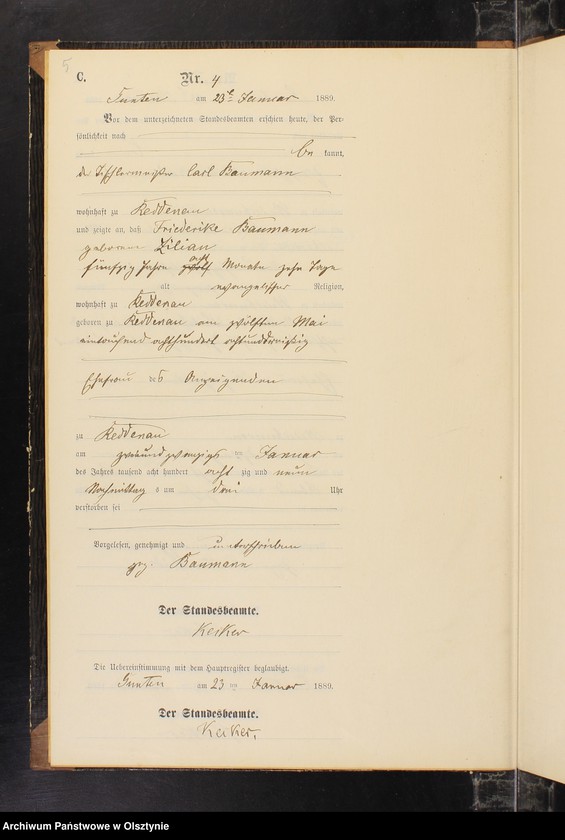 5
C.
Nr. 4
Tunten am 23t Januar 1889.
Vor dem unterzeichneten Standesbeamten erschien heute, der Per-
sönlichkeit nach
be kannt,
der Tischlermeister Carl Baumann
wohnhaft zu Reddenau
und zeigte an, daß Friederike Baumann
geborene Zilian
fünfzig Jahre zwölf acht Monate zehn Tage
alt evangelischer Religion,
wohnhaft zu Reddenau
geboren zu Reddenau am zwölften Mai
eintausend achthundert achtunddreißig
Ehefrau des Anzeigenden
zu Reddenau
am zweiundzwanzigs ten Januar
des Jahres tausend acht hundert acht zig und neun
Nachmittag s um drei Uhr
verstorben sei
Vorgelesen, genehmigt und unterschrieben
gez. Baumann
Der Standesbeamte.
Keiker
Die Uebereinstimmung mit dem Hauptregister beglaubigt.
Tunten am 23 ten Januar 1889.
Der Standesbeamte.
Keiker.
Archiwum Państwowe w Olsztynie